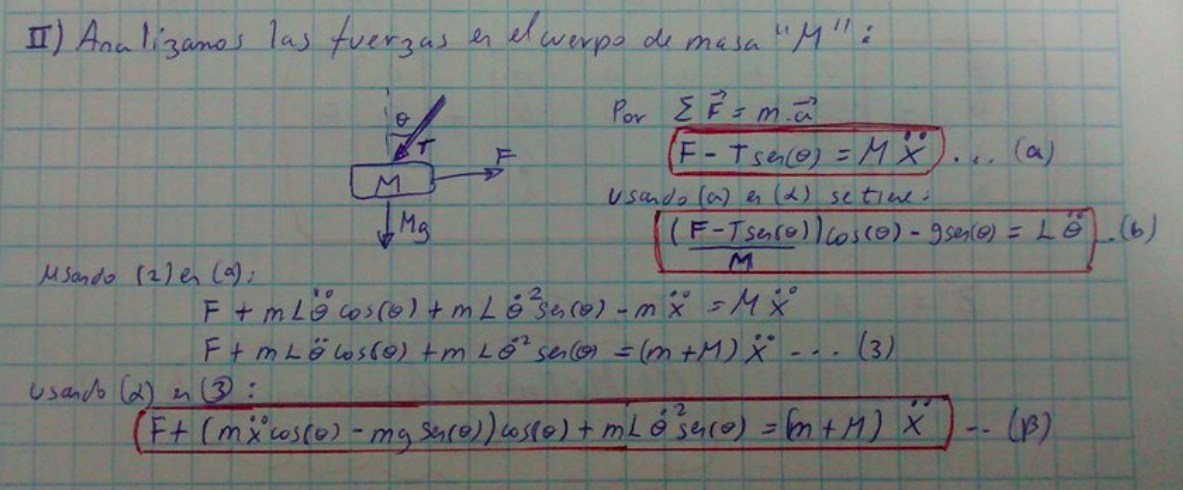 II) Analizamos las fuerzas en el cuerpo de masa "M":
θ
T
F
M
Mg
Por Σ F⃗ = m.a⃗
F - T sen(θ) = M Ẍ ... (a)
Usando (a) en (α) se tiene:
(F - Tsen(θ))/M cos(θ) - gsen(θ) = L θ̈ ..(b)
Usando (2) en (a):
F + m L θ̈ cos(θ) + m L θ̇² sen(θ) - m ẍ = M Ẍ
F + m L θ̈ cos(θ) + m L θ̇² sen(θ) = (m + M) Ẍ --- (3)
Usando (α) en (3):
F + (m ẍ cos(θ) - mg sen(θ)) cos(θ) + m L θ̇² sen(θ) = (m + M) Ẍ -- (β)